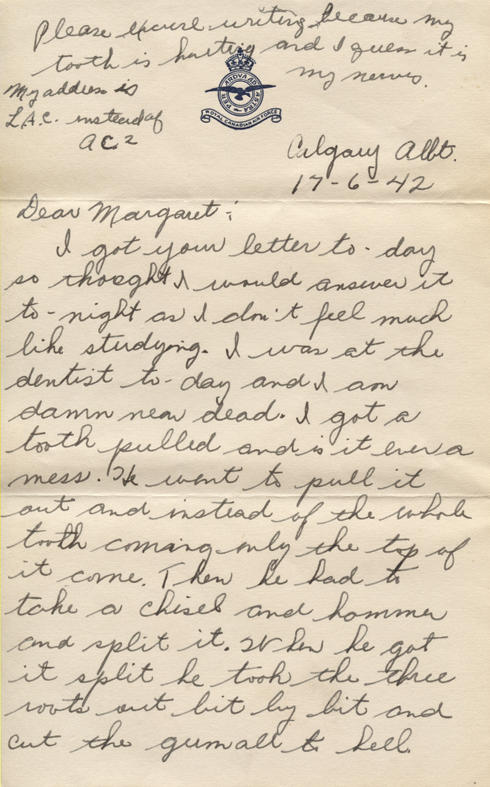 Please excuse writing because my
tooth is hurting and I guess it is
my nerves.
My address is
L.A.C. instead of
AC2
PER ARDVA AD ASTRA
ROYAL CANADIAN AIR FORCE
Calgary Albt.
17-6-42
Dear Margaret:
I got your letter to-day
so thought I would answer it
to-night as I don't feel much
like studying. I was at the
dentist to-day and I am
damn near dead. I got a
tooth pulled and is it ever a
mess. He went to pull it
out and instead of the whole
tooth coming only the top of
it come. Then he had to
take a chisel and hammer
and split it. When he got
it split he took the three
roots out bit by bit and
cut the gum all to hell.